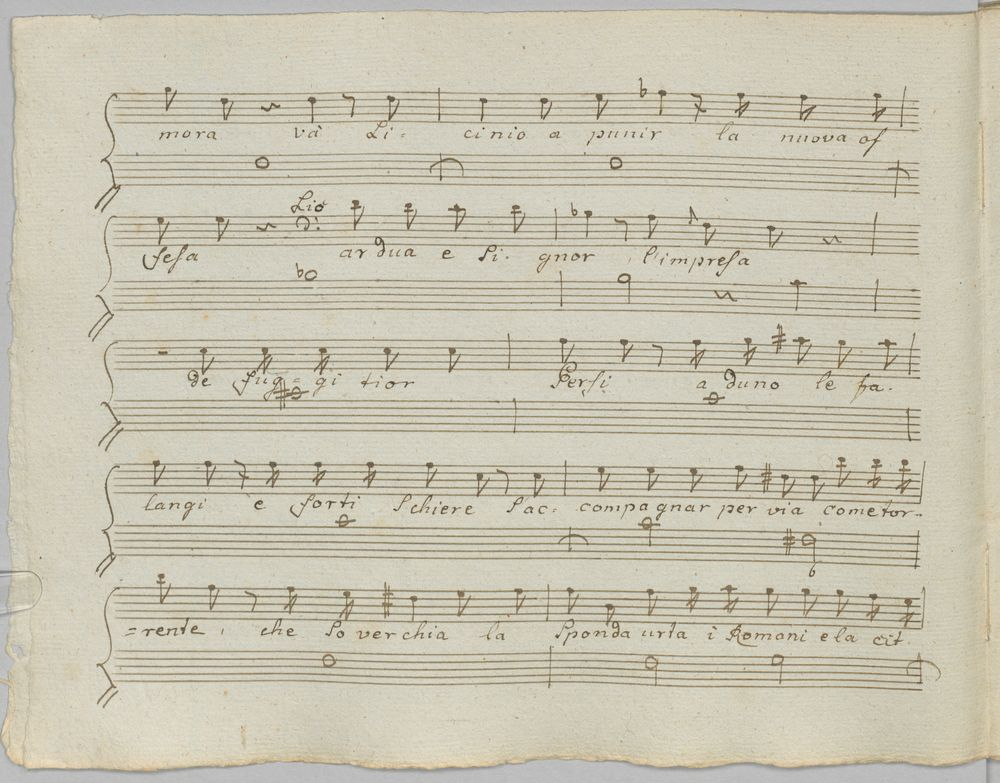 mora và Li- cinio a punir la nuova of
Lio
fesa ardua e Si- gnor l'impresa
de fug= gi tior Persi aduno le fa-
langi è forti Schiere Sac= compagnar per via come tor-
=rente, che So verchia la Sponda urta i Romani e la cit